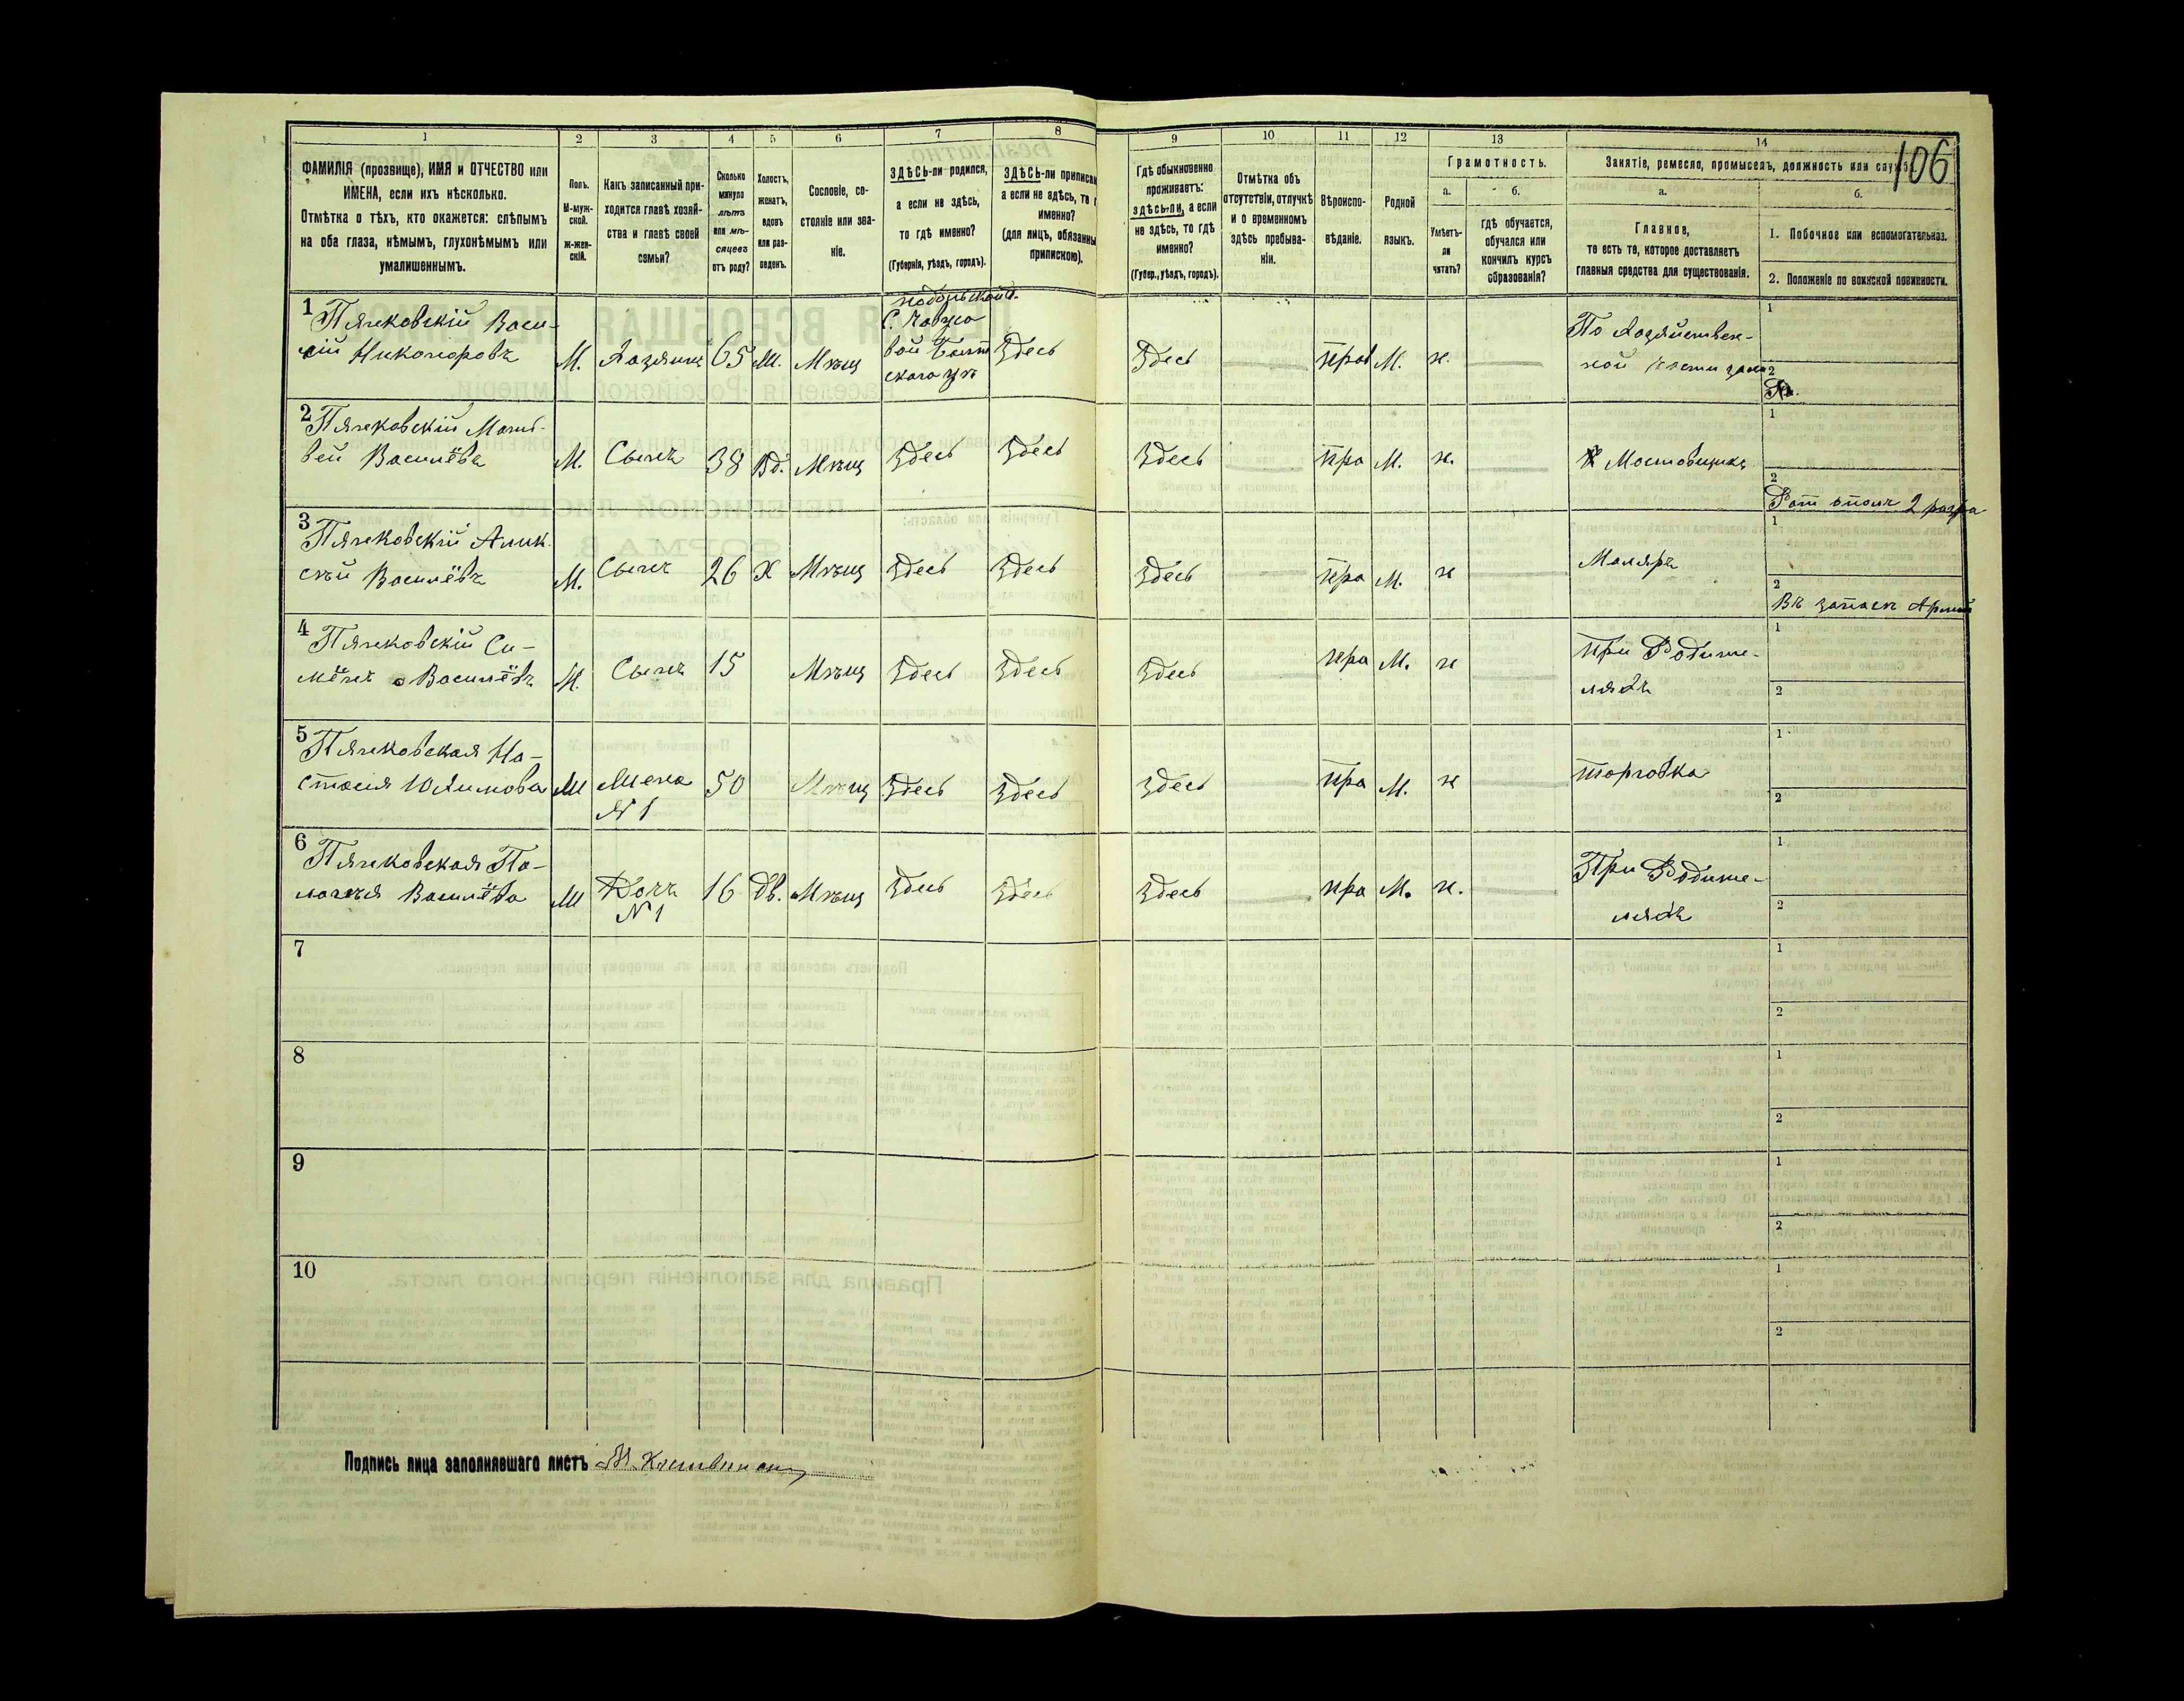 106
1 2 3 4 5 6 7 8 9 10 11 12 13 14
ФАМИЛІЯ (прозвище), ИМЯ и ОТЧЕСТВО или
ИМЕНА, если ихъ нѣсколько.
Отмѣтка о тѣхъ, кто окажется: слѣпымъ
на оба глаза, нѣмымъ, глухонѣмымъ или
умалишеннымъ.
Полъ.
М-муж-
ской.
Ж-жен-
скій.
Какъ записанный при-
ходится главѣ хозяй-
ства и главѣ своей
семьи?
Сколько
минуло
лѣтъ
или мѣ-
сяцевъ
отъ роду?
Холостъ,
женатъ,
вдовъ
или раз-
веденъ.
Сословіе, со-
стояніе или зва-
ніе.
ЗДѢСЬ-ли родился,
а если не здѣсь,
то гдѣ именно?
(Губернія, уѣздъ, городъ).
ЗДѢСЬ-ли приписан
а если не здѣсь, то г
именно?
(для лицъ, обязанны
припискою).
Гдѣ обыкновенно
проживаетъ:
здѣсь-ли, а если
не здѣсь, то гдѣ
именно?
(Губер., уѣздъ, городъ).
Отмѣтка объ
отсутствіи, отлучкѣ
и о временномъ
здѣсь пребыва-
ніи.
Вѣроиспо-
вѣданіе.
Родной
языкъ.
Грамотность.
а. б.
Умѣетъ-
ли
читать?
Гдѣ обучается,
обучался или
кончилъ курсъ
образованія?
Занятіе, ремесло, промыселъ, должность или служба
а. б.
Главное,
то есть то, которое доставляетъ
главныя средства для существованія.
1. Побочное или вспомогательное.
2. Положеніе по воинской повинности.
подольской г.
1 Пячковскій Васи- С. По Хозяйствен- 1
лій Никоноровъ М. Хозяинъ 65 М. Мѣщ Здесь Здесь прав М. н. ной 2
ского
2 Пячковскій Мат- 1
вей Василёвъ М. Сынъ 38 Вд. Мѣщ Здесь Здесь Здесь пра М. н. Мостовщикъ
2 Рат 2 разря
3 Пячковскій Алик- 1
сѣй Василёвъ М. Сынъ 26 Х Мѣщ Здесь Здесь Здесь пра М. н Маляръ
2 Въ запасѣ Армий
4 Пячковскій Си- при Родите- 1
мёнъ Василёвъ М. Сынъ 15 Мѣщ Здесь Здесь Здесь пра М. н ляхъ 2
5 Пячковская На- 1
стасия Юхимова Ж Жена 50 Мѣщ Здесь Здесь Здесь пра М. н торговка 2
№ 1
6 Пячковская Па- При Родите- 1
лагея Василёва Ж Дочь 16 дв. Мѣщ Здесь Здесь Здесь пра М. н. ляхъ 2
№ 1
7 1
2
8 1
2
9 1
2
10 1
2
Подпись лица заполнявшаго листъ